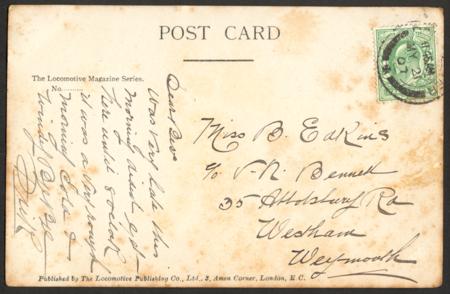 POST CARD
The Locomotive Magazine Series.
No.
Dear Bea
Was Very late this
morning didnt get
here until 8 oclock
it was a very rough
morning Cold &
Windy
Miss B. Eakins
c/o V. R. Bennett
35 Abbotsbury Rd
Westham
Weymouth
Published by The Locomotive Publishing Co., Ltd., 3, Amen Corner, London, E.C.